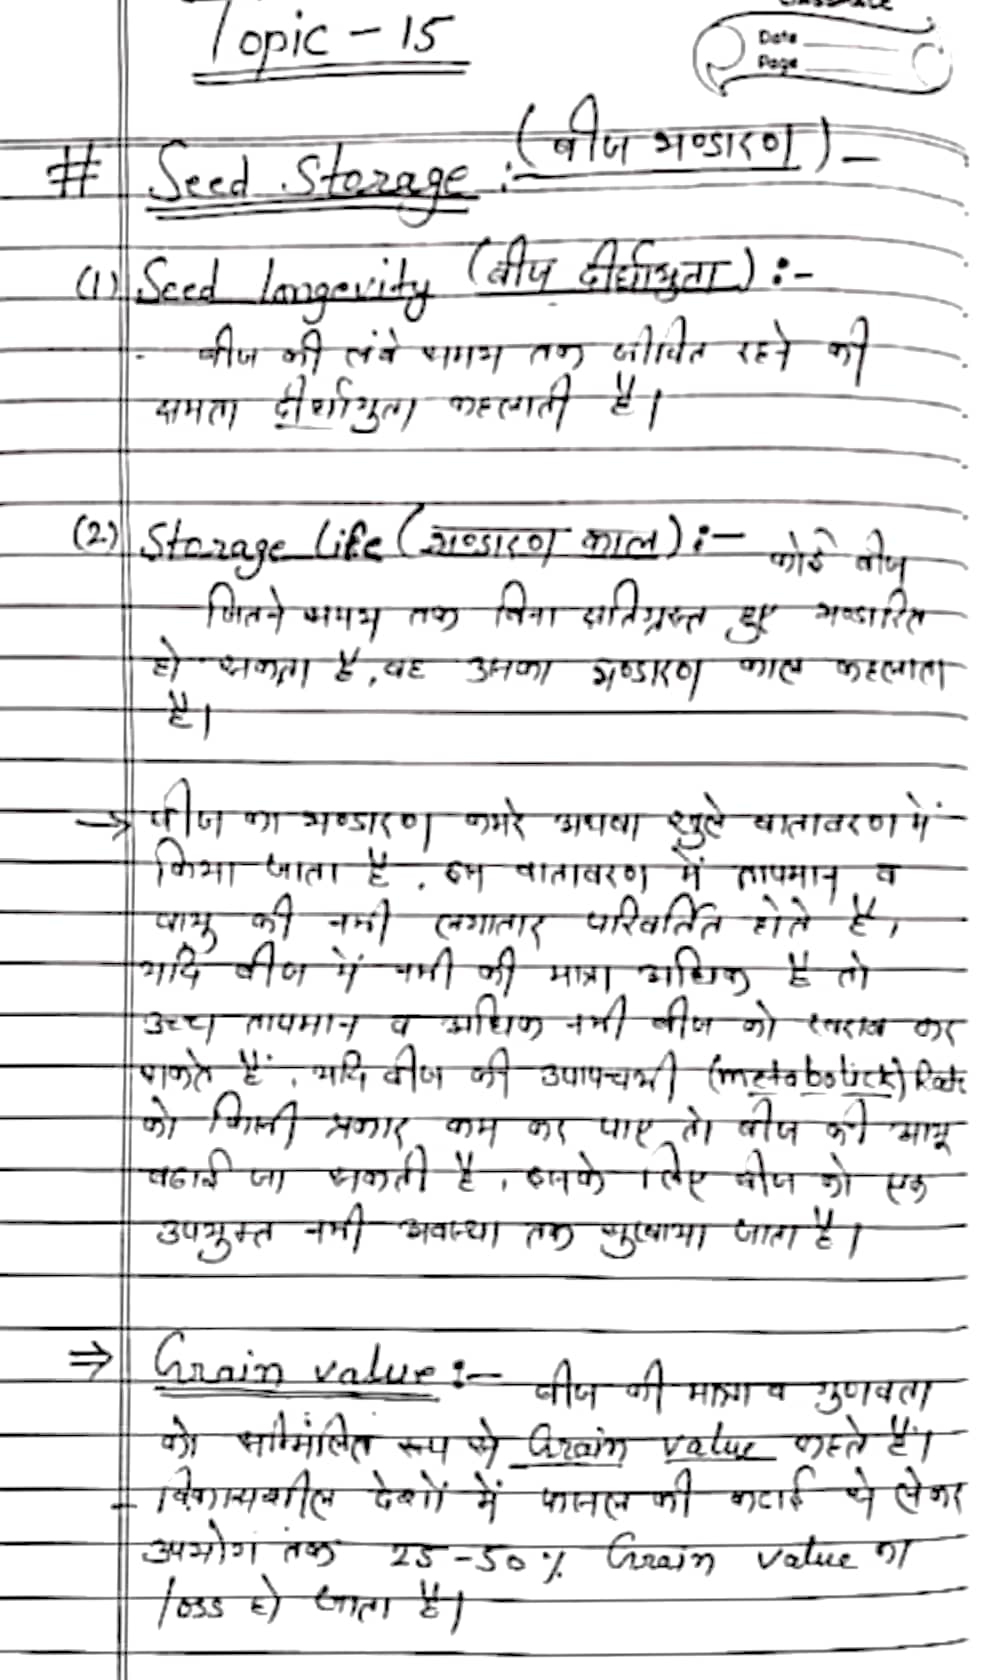 Topic - 15
Date
Page
# Seed Storage : (बीज भण्डारण) -
(1) Seed longevity (बीज दीर्घायुता) :-
बीज की लंबे समय तक जीवित रहने की
क्षमता दीर्घायुता कहलाती है।
(2) Storage life (भण्डारण काल) :- कोई बीज
जितने समय तक बिना क्षतिग्रस्त हुए भण्डारित
हो सकता है, वह उसका भण्डारण काल कहलाता
है।
→ बीज का भण्डारण कमरे अथवा खुले वातावरण में
किया जाता है, इस वातावरण में तापमान व
वायु की नमी लगातार परिवर्तित होते है,
यदि बीज में नमी की मात्रा अधिक है तो
उच्च तापमान व अधिक नमी बीज को खराब कर
सकते हैं, यदि बीज की उपापचयी (metabolick) Rate
को किसी प्रकार कम कर पाए तो बीज की आयु
बढाई जा सकती है, इसके लिए बीज को एक
उपयुक्त नमी अवस्था तक सुखाया जाता है।
⇒ Grain value :- बीज की मात्रा व गुणवता
को सम्मिलित रूप से Grain value कहते हैं।
- विकासशील देशों में फसल की कटाई से लेकर
उपभोग तक 25-50% Grain value का
loss हो जाता है।